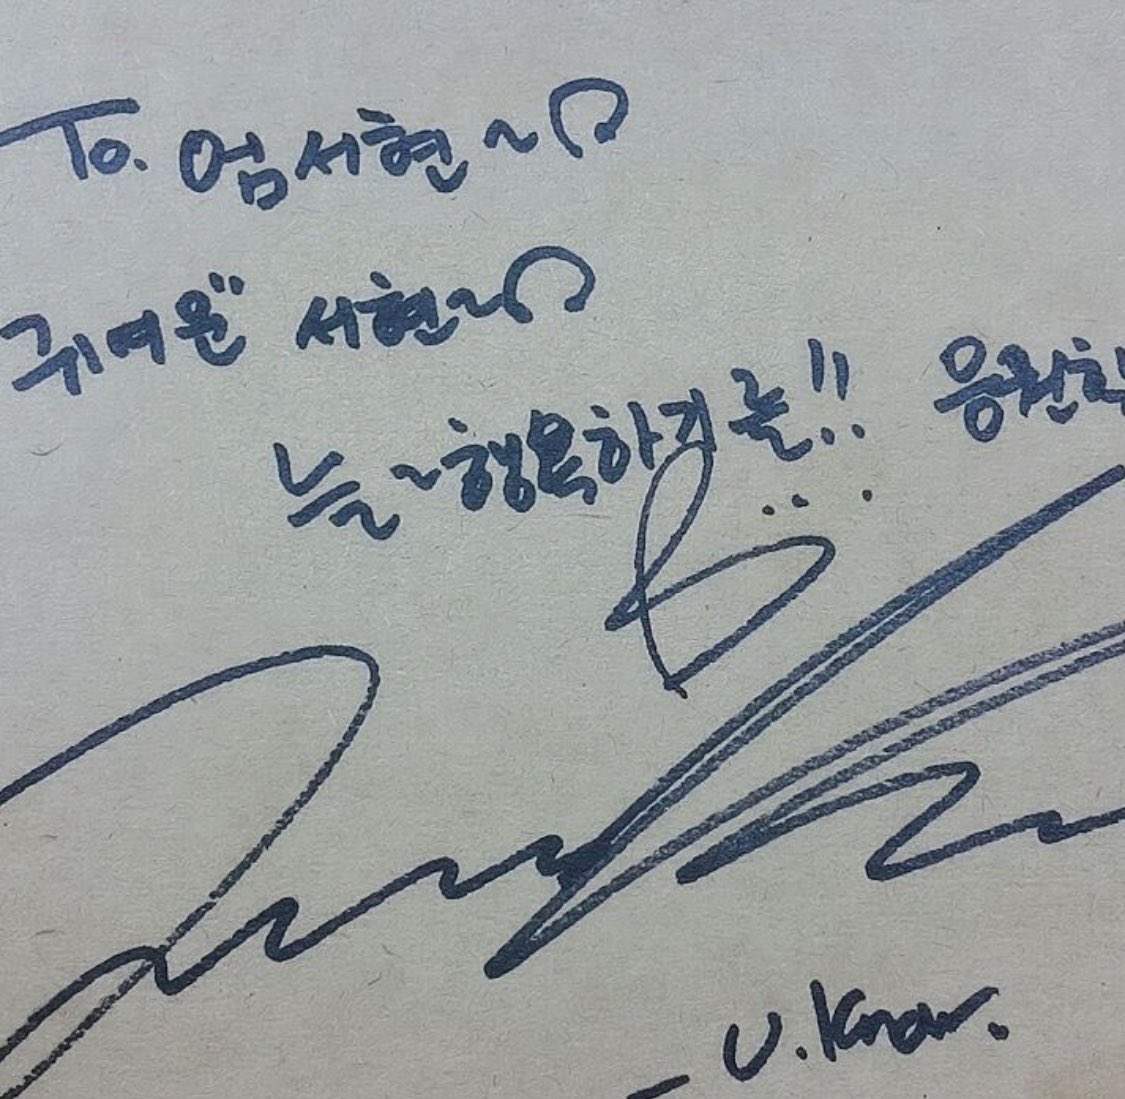 To. 엄서현~
귀여운" 서현~
늘~행복하기를!! 응원할
- U.Know.